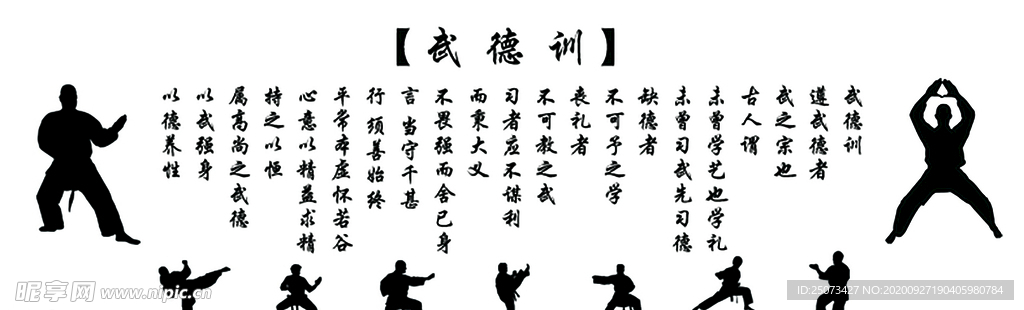 【武德训】
武德训
遵武德者
武之宗也
古人谓
未曾学艺也学礼
未曾习武先习德
缺德者
不可予之学
丧礼者
不可教之武
习者应不谋利
而秉大义
不畏强而舍己身
言当守千甚
行须善始终
平常本虚怀若谷
心意以精益求精
持之以恒
属高尚之武德
以武强身
以德养性
昵享网 www.nipic.cn
ID:25073427 NO:20200927190405980784